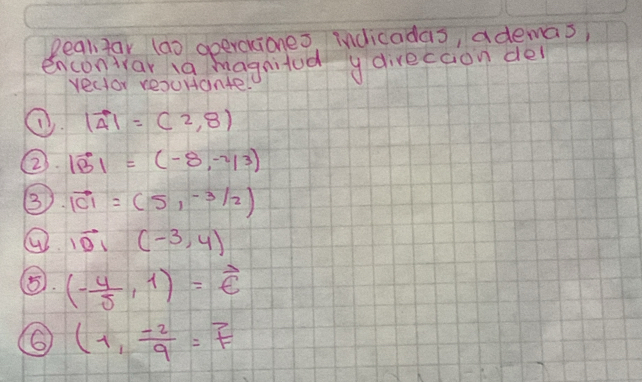 Realizar las operaciones indicadas, ademas,
encontrar la magnitud y dirección del
vector resultante.
①. |A⃗| = (2,8)
②. |B⃗| = (-8,-2/3)
③. |C⃗| = (5, -3/2)
④. |D⃗| (-3,4)
⑤. (-4/5, 1) = E⃗
⑥ (1, -2/9 = F⃗